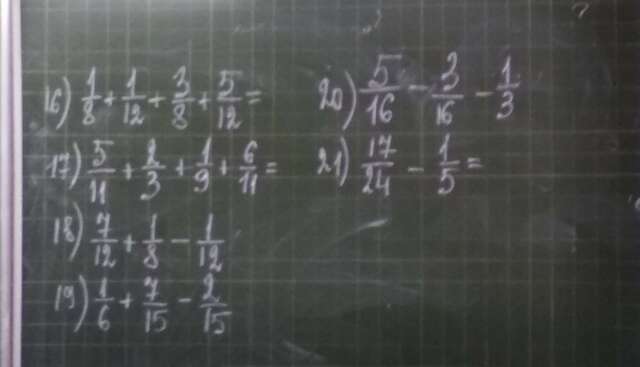 16) 1/8 + 1/12 + 3/8 + 5/12 =
17) 5/11 + 2/3 + 1/9 + 6/11 =
18) 7/12 + 1/8 - 1/12
19) 1/6 + 7/15 - 2/15
20) 5/16 - 3/16 - 1/3
21) 17/24 - 1/5 =